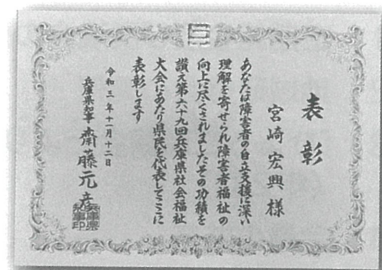 表彰
宮崎宏興様
あなたは障害者の自立支援に深い
理解を寄せられ障害者福祉の
向上に尽くされましたその功績を
讃え第六十九回兵庫県社会福祉
大会にあたり県民を代表してここに
表彰します
令和三年十一月十二日
兵庫県知事 齋藤元彦
兵庫県
知事印